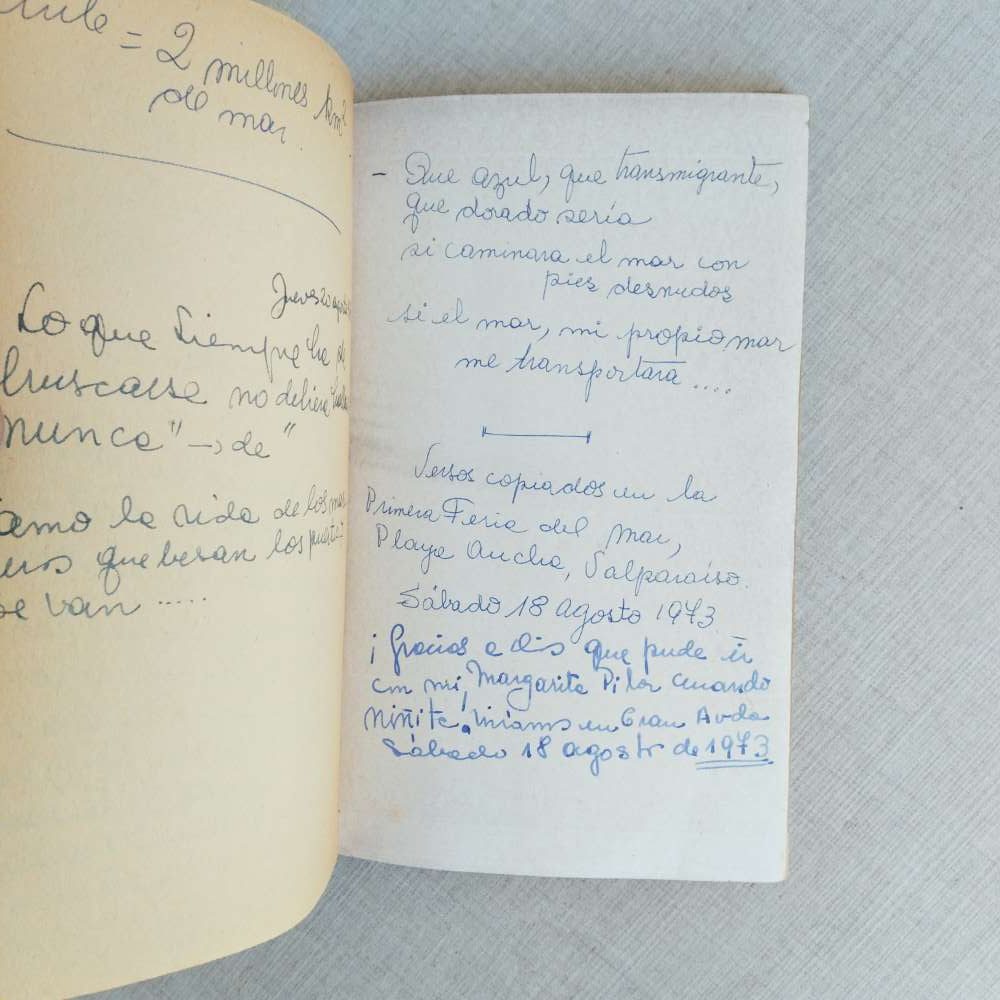 = 2 millones km²
de mar.
Jueves 20 agosto
Lo que siempre he
buscarse no debiera
nunca" → de "
amo la vida de los
que besan los puertos
se van .....
- Que azul, que transmigrante,
que dorado sería
si caminara el mar con
pies desnudos
si el mar, mi propio mar
me transportara ....
Versos copiados en la
Primera Feria del Mar,
Playa Ancha, Valparaíso.
Sábado 18 agosto 1973
¡Gracias a Dios que pude ir
con mi Margarita Pilar cuando
niñita! Vivíamos en Gran Avda
Sábado 18 agosto de 1973